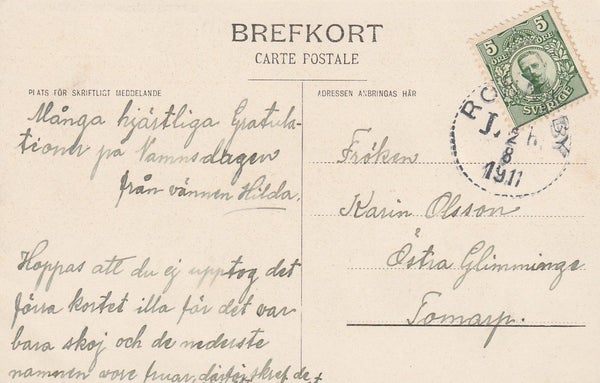 BREFKORT
CARTE POSTALE
PLATS FÖR SKRIFTLIGT MEDDELANDE
Många hjärtliga Gratula-
tioner på Namnsdagen
från vännen Hilda.
Hoppas att du ej upptog det
förra kortet illa för det var
bara skoj och de nederste
namnen vore fruar, därför skref det
ADRESSEN ANBRINGAS HÄR
Fröken
Karin Olsson
Östra Glimminge
Tomarp.
5 5
ÖRE ÖRE
SVERIGE
2
8
1911